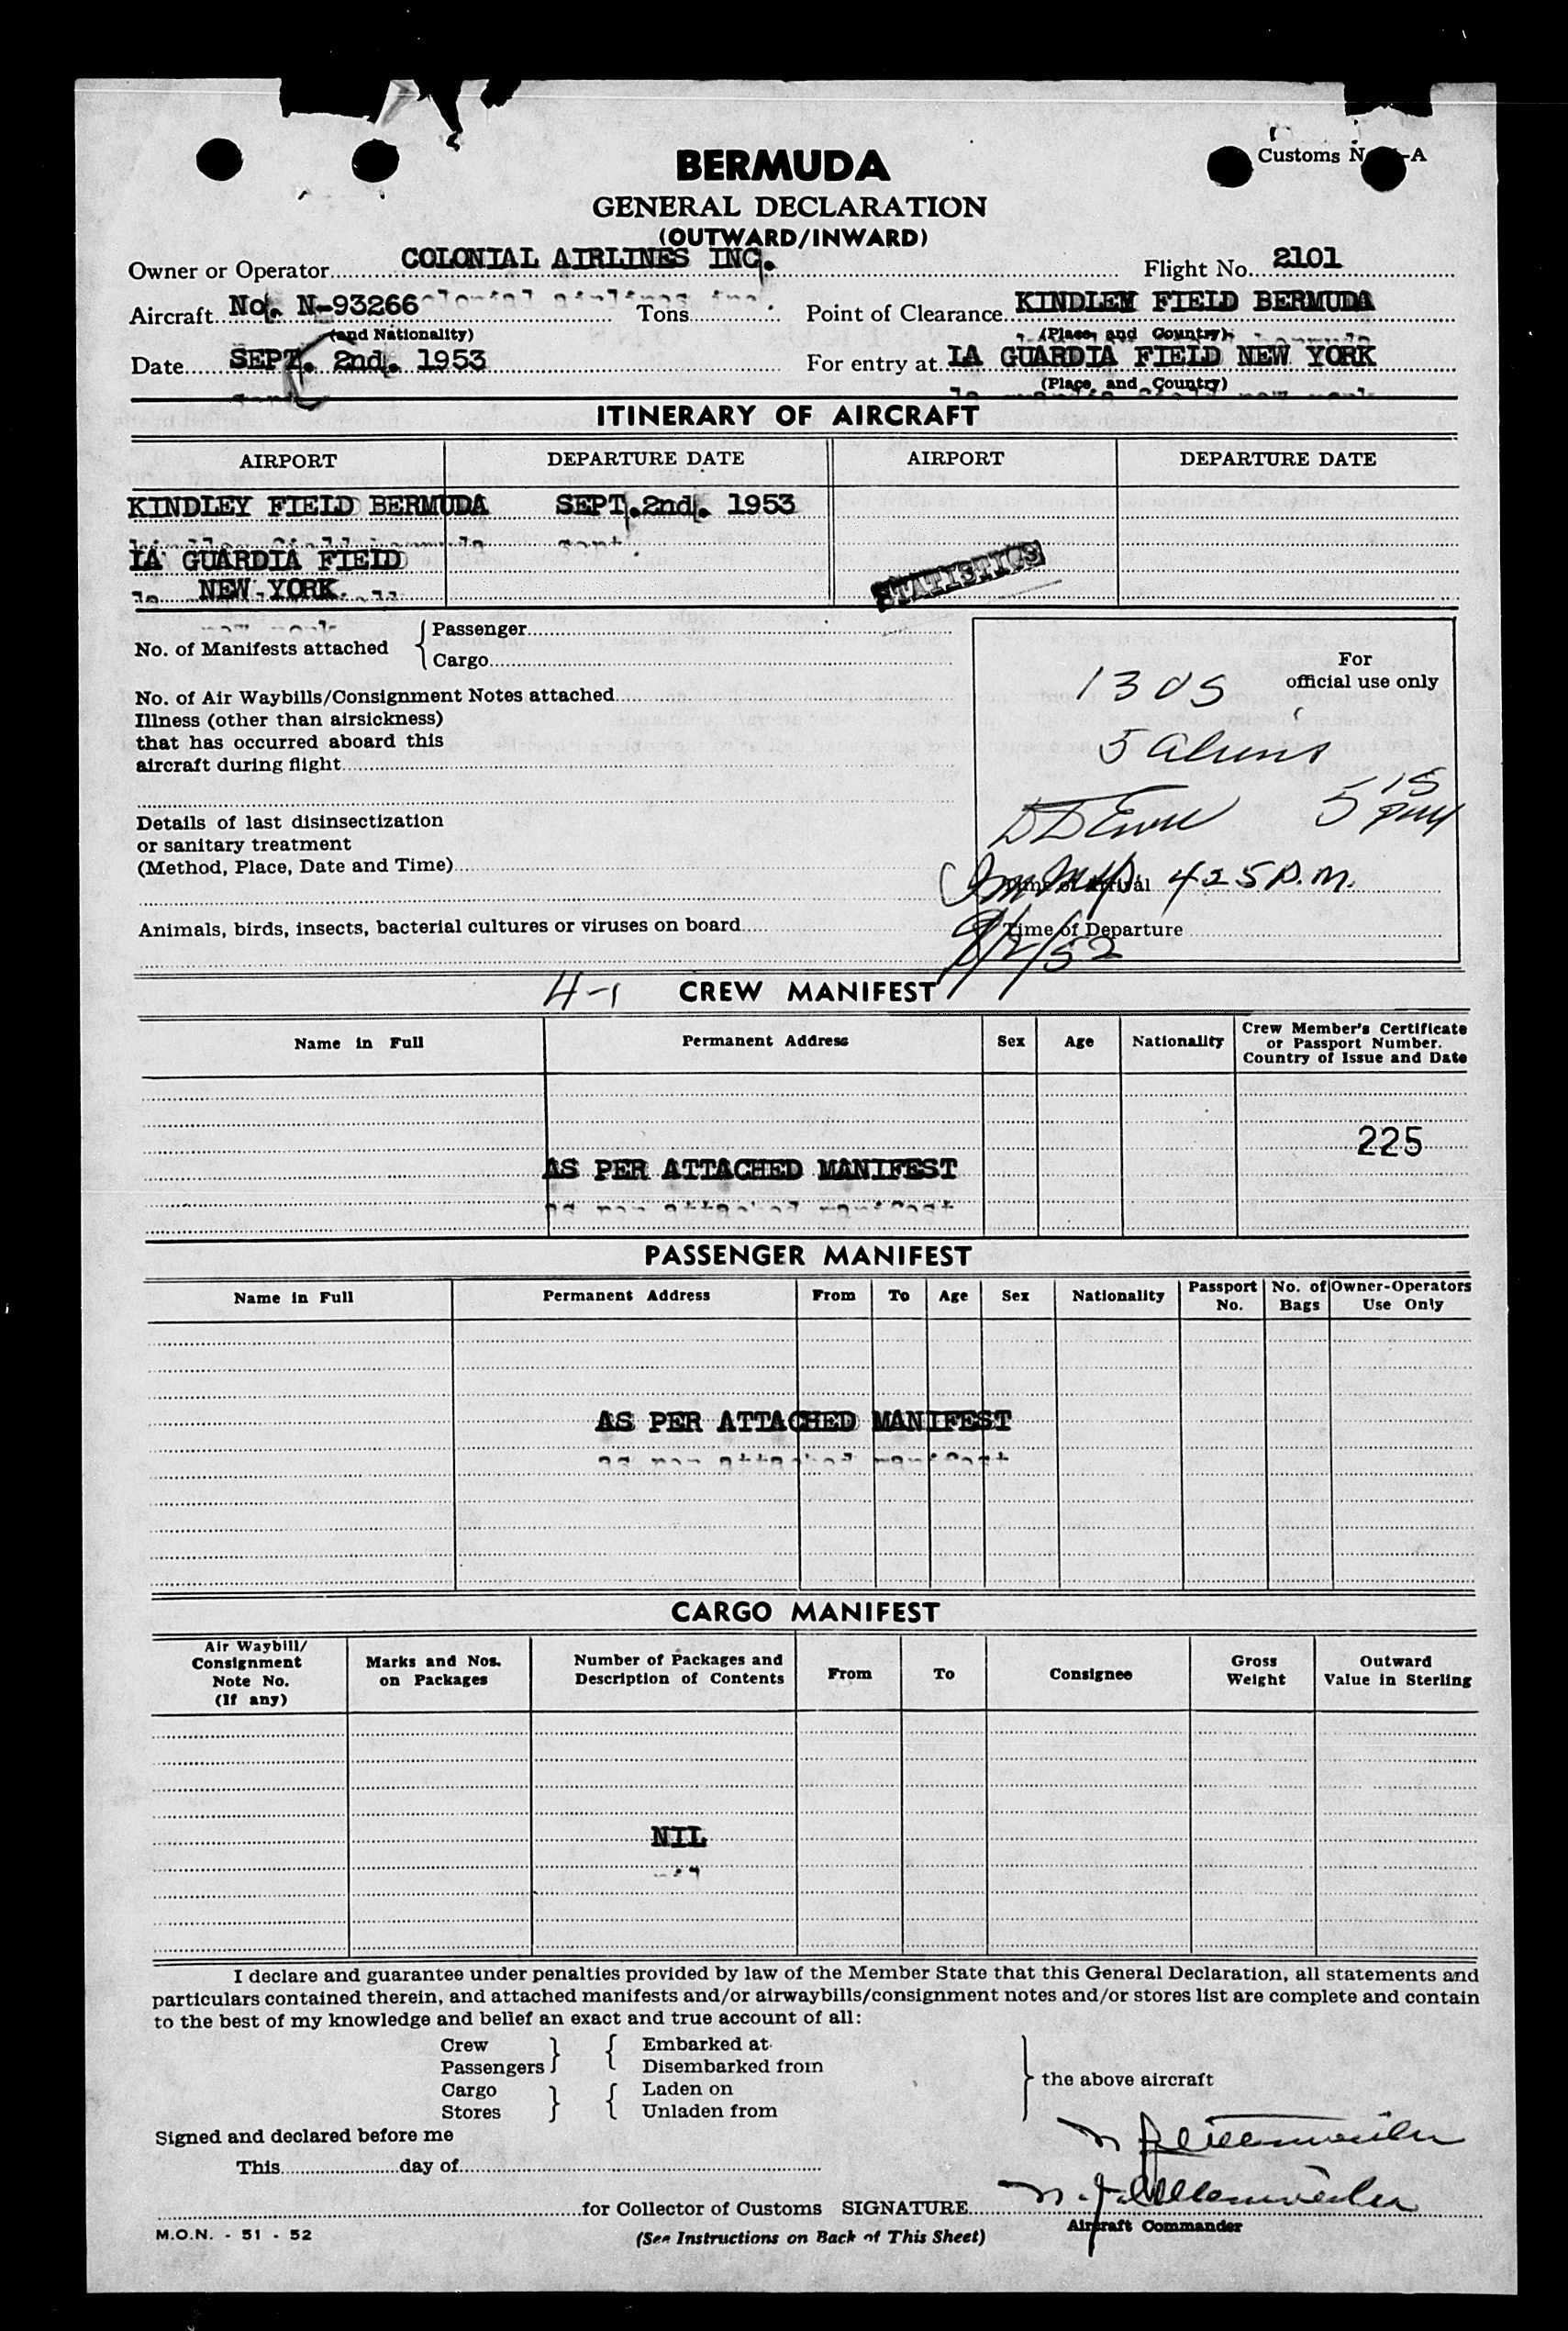 Customs N -A
BERMUDA
GENERAL DECLARATION
(OUTWARD/INWARD)
Owner or Operator COLONIAL AIRLINES INC. Flight No. 2101
Aircraft No. N-93266 Tons Point of Clearance KINDLEY FIELD BERMUDA
(and Nationality) (Place and Country)
Date SEPT. 2nd. 1953 For entry at LA GUARDIA FIELD NEW YORK
(Place and Country)
ITINERARY OF AIRCRAFT
AIRPORT DEPARTURE DATE AIRPORT DEPARTURE DATE
KINDLEY FIELD BERMUDA SEPT.2nd. 1953
LA GUARDIA FIELD
NEW YORK.
STATISTICS
No. of Manifests attached { Passenger
Cargo
No. of Air Waybills/Consignment Notes attached
Illness (other than airsickness)
that has occurred aboard this
aircraft during flight
Details of last disinsectization
or sanitary treatment
(Method, Place, Date and Time)
Animals, birds, insects, bacterial cultures or viruses on board
For
official use only
13 US
5 Aliens
5 15
Time of Arrival 425 P.M.
Time of Departure
9/2/52
4-1 CREW MANIFEST
Name in Full Permanent Address Sex Age Nationality Crew Member's Certificate
or Passport Number.
Country of Issue and Date
225
AS PER ATTACHED MANIFEST
PASSENGER MANIFEST
Name in Full Permanent Address From To Age Sex Nationality Passport No. No. of Bags Owner-Operators Use Only
AS PER ATTACHED MANIFEST
CARGO MANIFEST
Air Waybill/ Consignment Note No. (If any) Marks and Nos. on Packages Number of Packages and Description of Contents From To Consignee Gross Weight Outward Value in Sterling
NIL
I declare and guarantee under penalties provided by law of the Member State that this General Declaration, all statements and
particulars contained therein, and attached manifests and/or airwaybills/consignment notes and/or stores list are complete and contain
to the best of my knowledge and belief an exact and true account of all:
Crew } { Embarked at
Passengers } { Disembarked from
Cargo } { Laden on
Stores } { Unladen from
} the above aircraft
Signed and declared before me
This day of
for Collector of Customs SIGNATURE
Aircraft Commander
M.O.N. - 51 - 52
(See Instructions on Back of This Sheet)